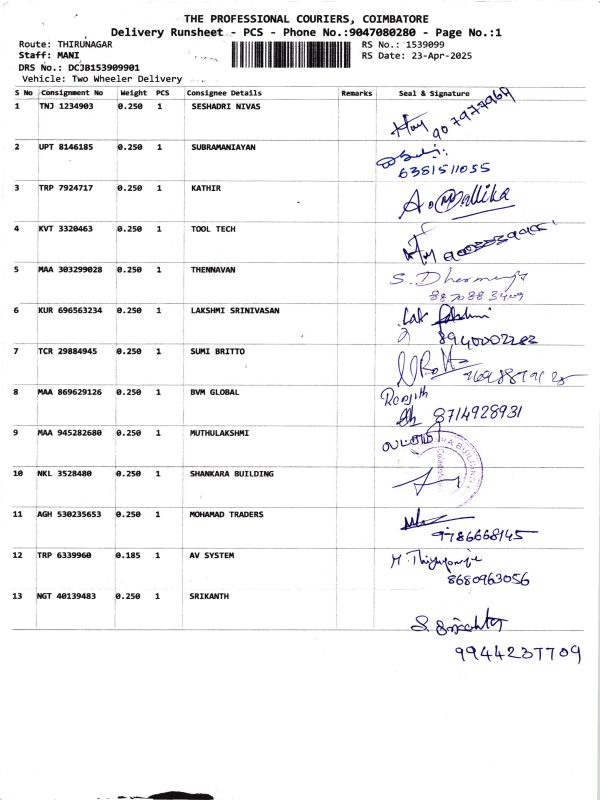 THE PROFESSIONAL COURIERS, COIMBATORE
Delivery Runsheet - PCS - Phone No.:9047080280 - Page No.:1
Route: THIRUNAGAR RS No.: 1539099
Staff: MANI RS Date: 23-Apr-2025
DRS No.: DCJB153909901
Vehicle: Two Wheeler Delivery
S No Consignment No Weight PCS Consignee Details Remarks Seal & Signature
1 TNJ 1234903 0.250 1 SESHADRI NIVAS
2 UPT 8146185 0.250 1 SUBRAMANIAYAN
6381511055
3 TRP 7924717 0.250 1 KATHIR
A. Mallika
4 KVT 3320463 0.250 1 TOOL TECH
5 MAA 303299028 0.250 1 THENNAVAN
S. Dharmaraj
8870883409
6 KUR 696563234 0.250 1 LAKSHMI SRINIVASAN
8940002282
7 TCR 29884945 0.250 1 SUMI BRITTO
8 MAA 869629126 0.250 1 BVM GLOBAL
Renjith
8714928931
9 MAA 945282680 0.250 1 MUTHULAKSHMI
10 NKL 3528480 0.250 1 SHANKARA BUILDING
11 AGH 530235653 0.250 1 MOHAMAD TRADERS
9786668145
12 TRP 6339960 0.185 1 AV SYSTEM
8680963056
13 NGT 40139483 0.250 1 SRIKANTH
9944237709